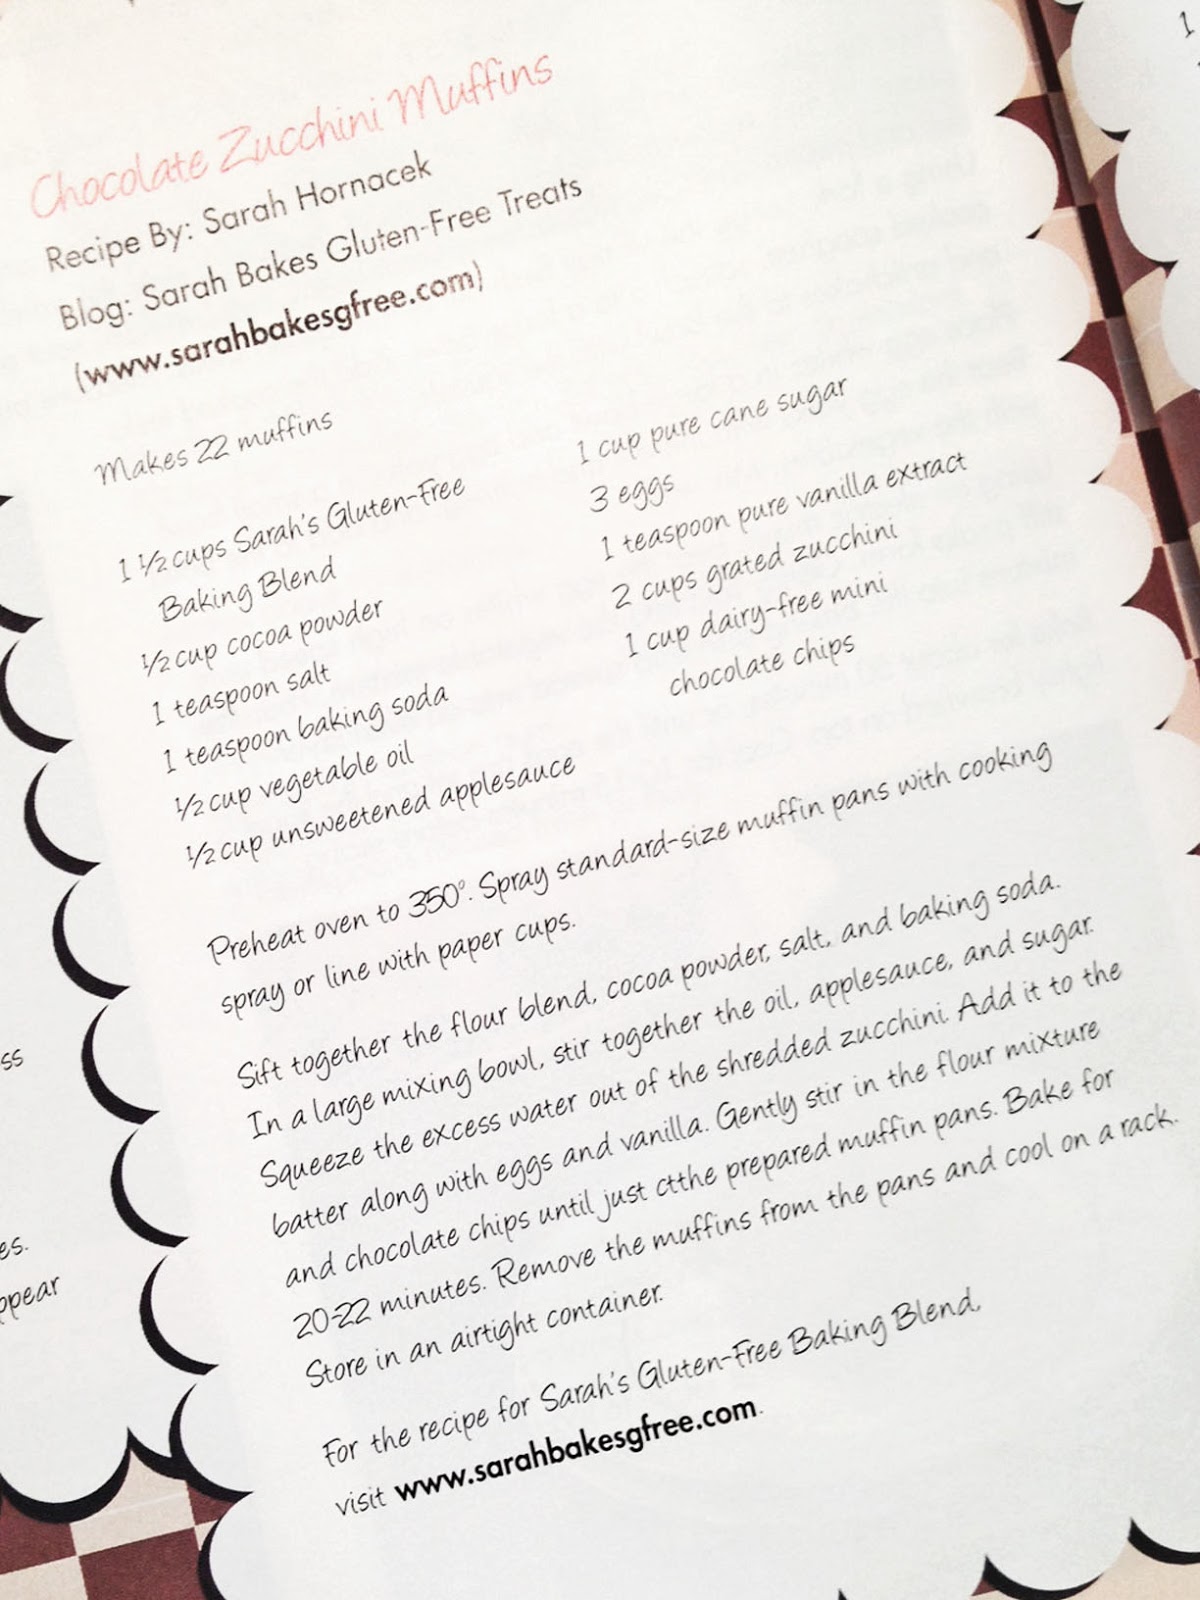 Chocolate Zucchini Muffins
Recipe By: Sarah Hornacek
Blog: Sarah Bakes Gluten-Free Treats
(www.sarahbakesgfree.com)
Makes 22 muffins
1 ½ cups Sarah's Gluten-Free
Baking Blend
½ cup cocoa powder
1 teaspoon salt
1 teaspoon baking soda
½ cup vegetable oil
½ cup unsweetened applesauce
1 cup pure cane sugar
3 eggs
1 teaspoon pure vanilla extract
2 cups grated zucchini
1 cup dairy-free mini
chocolate chips
Preheat oven to 350°. Spray standard-size muffin pans with cooking
spray or line with paper cups.
Sift together the flour blend, cocoa powder, salt, and baking soda.
In a large mixing bowl, stir together the oil, applesauce, and sugar.
Squeeze the excess water out of the shredded zucchini. Add it to the
batter along with eggs and vanilla. Gently stir in the flour mixture
and chocolate chips until just ctthe prepared muffin pans. Bake for
20-22 minutes. Remove the muffins from the pans and cool on a rack.
Store in an airtight container.
For the recipe for Sarah's Gluten-Free Baking Blend,
visit www.sarahbakesgfree.com.
ss
es.
ppear
1